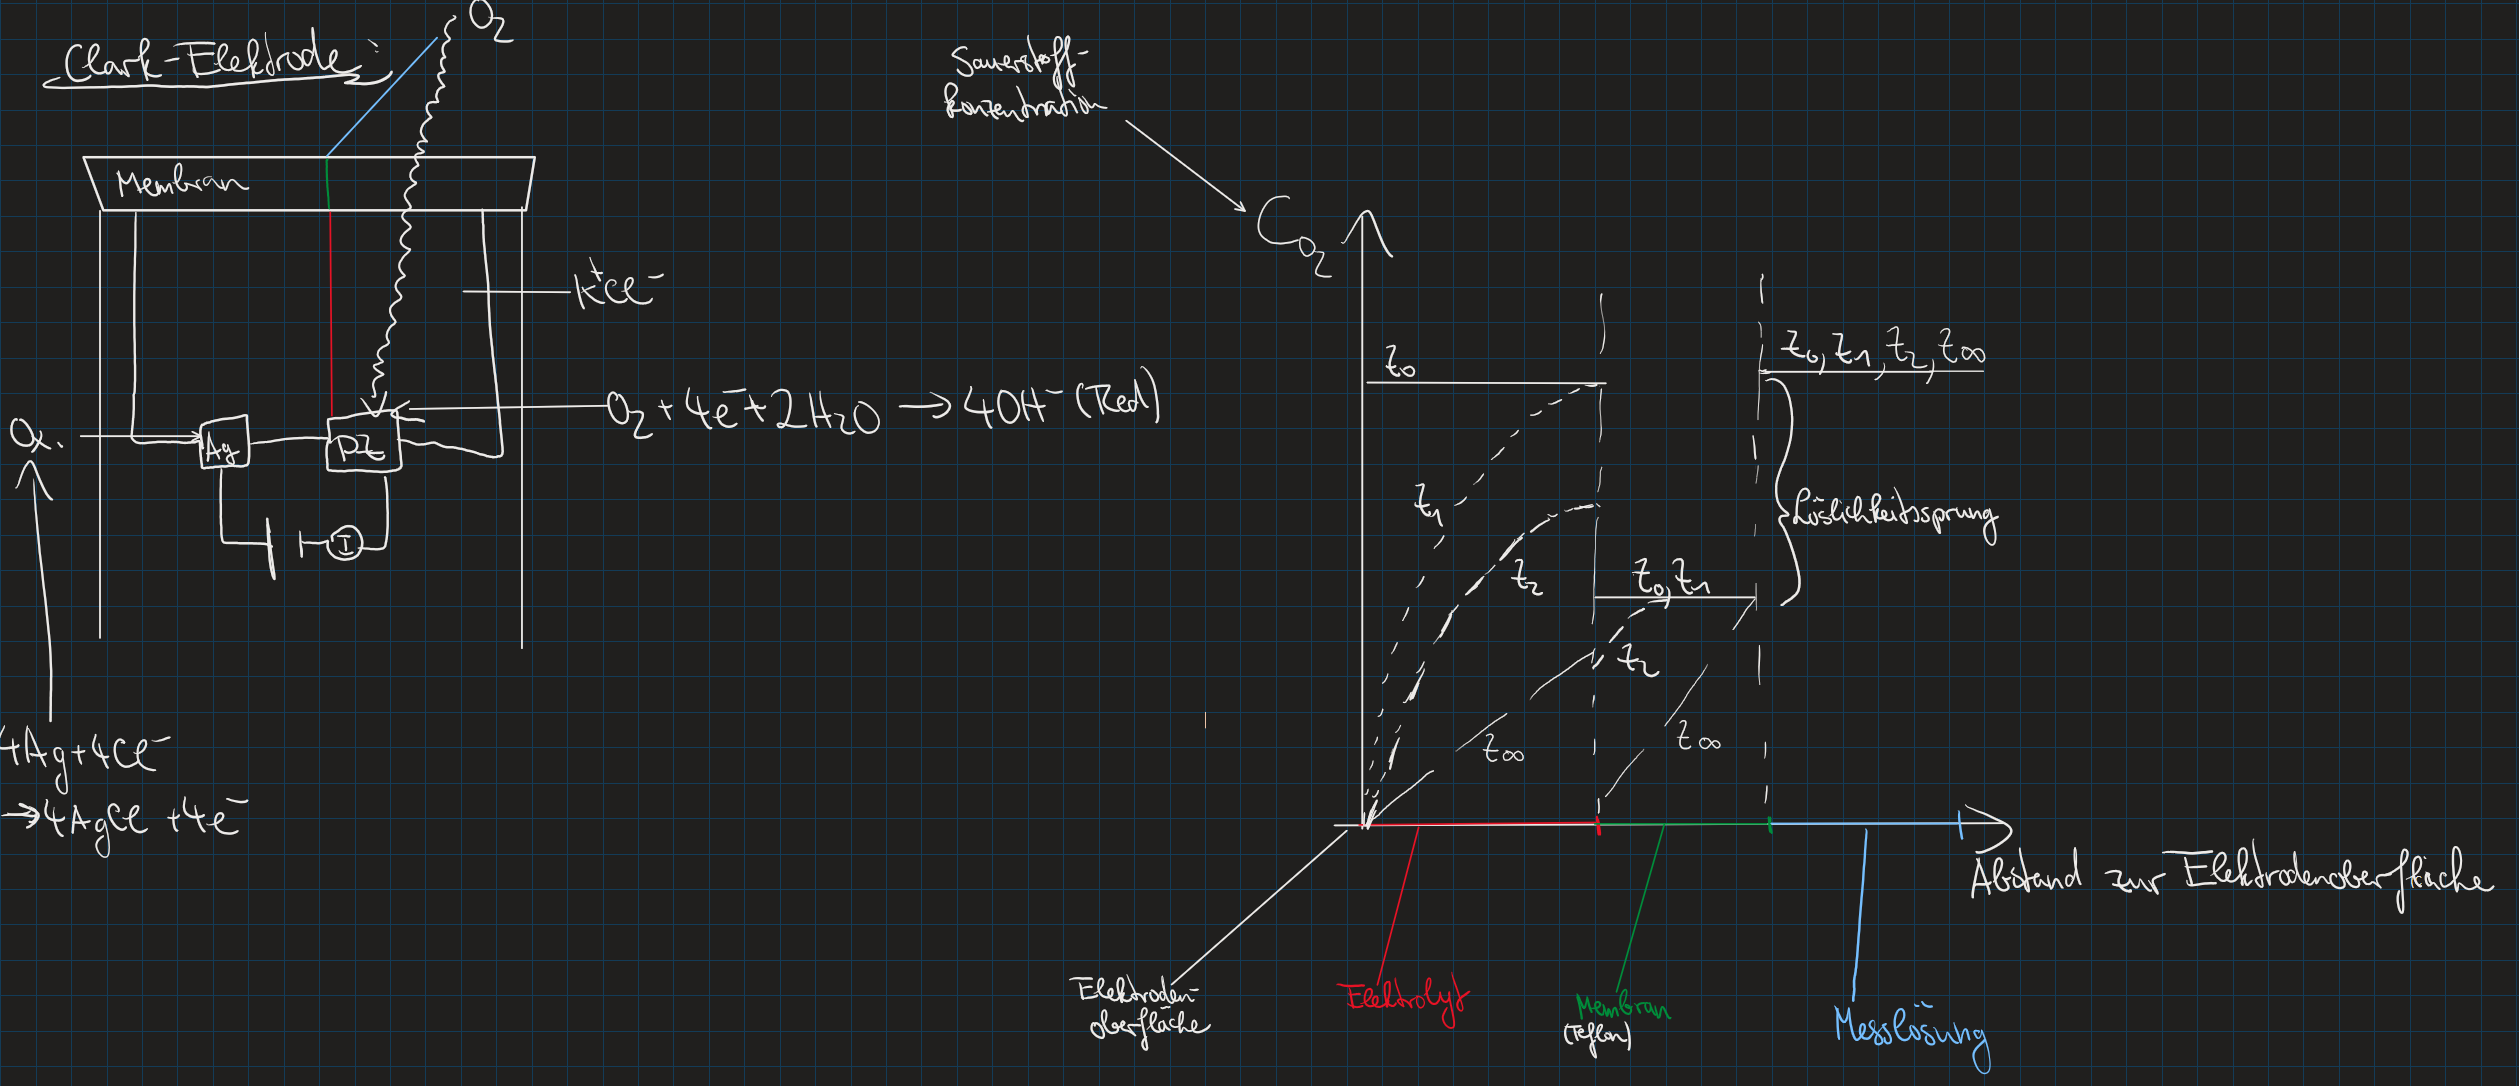 Clark-Elektrode:
O₂
Membran
K⁺Cl⁻
O₂ + 4e⁻ + 2H₂O → 4OH⁻ (Red)
Ox.
Ag
Pt
I
4Ag + 4Cl⁻
→ 4AgCl + 4e⁻
Sauerstoff-
konzentration
C_O₂
z₀
z₀, z₁, z₂, z∞
z₁
Löslichkeitssprung
z₂
z₀, z₁
z₂
z∞
z∞
Abstand zur Elektrodenoberfläche
Elektroden-
oberfläche
Elektrolyt
Membran
(Teflon)
Messlösung